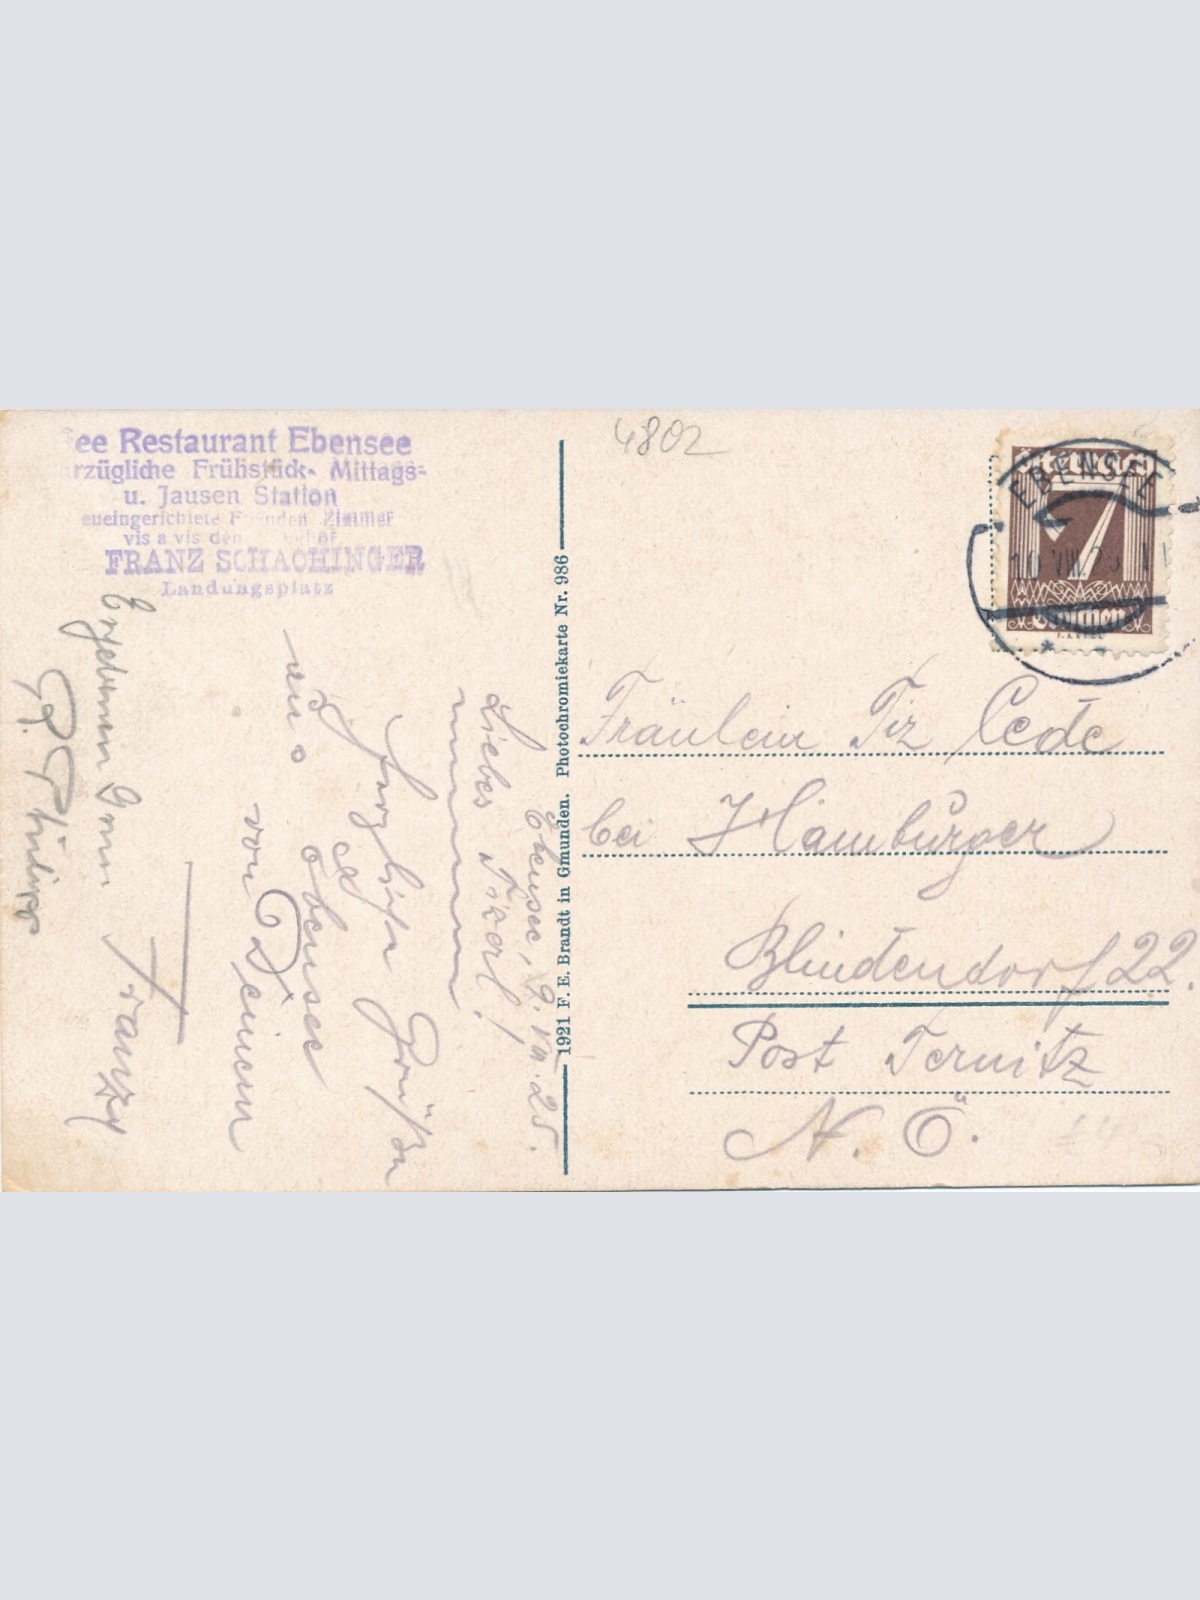 ee Restaurant Ebensee
rzügliche Frühstück- Mittags-
u. Jausen Station
eueingerichtete Zimmer
vis a vis
FRANZ SCHACHINGER
Landungsplatz
Ebensee, 9. VIII. 25.
Liebes
Herzliche Grüße
aus
Ebensee
von Deinem
Franzy
1921 F. E. Brandt in Gmunden. Photochromiekarte Nr. 986
4802
EBENSEE
7
Groschen
Fräulein
bei Hamburger
Blindendorf 22.
Post Ternitz
N. Ö.